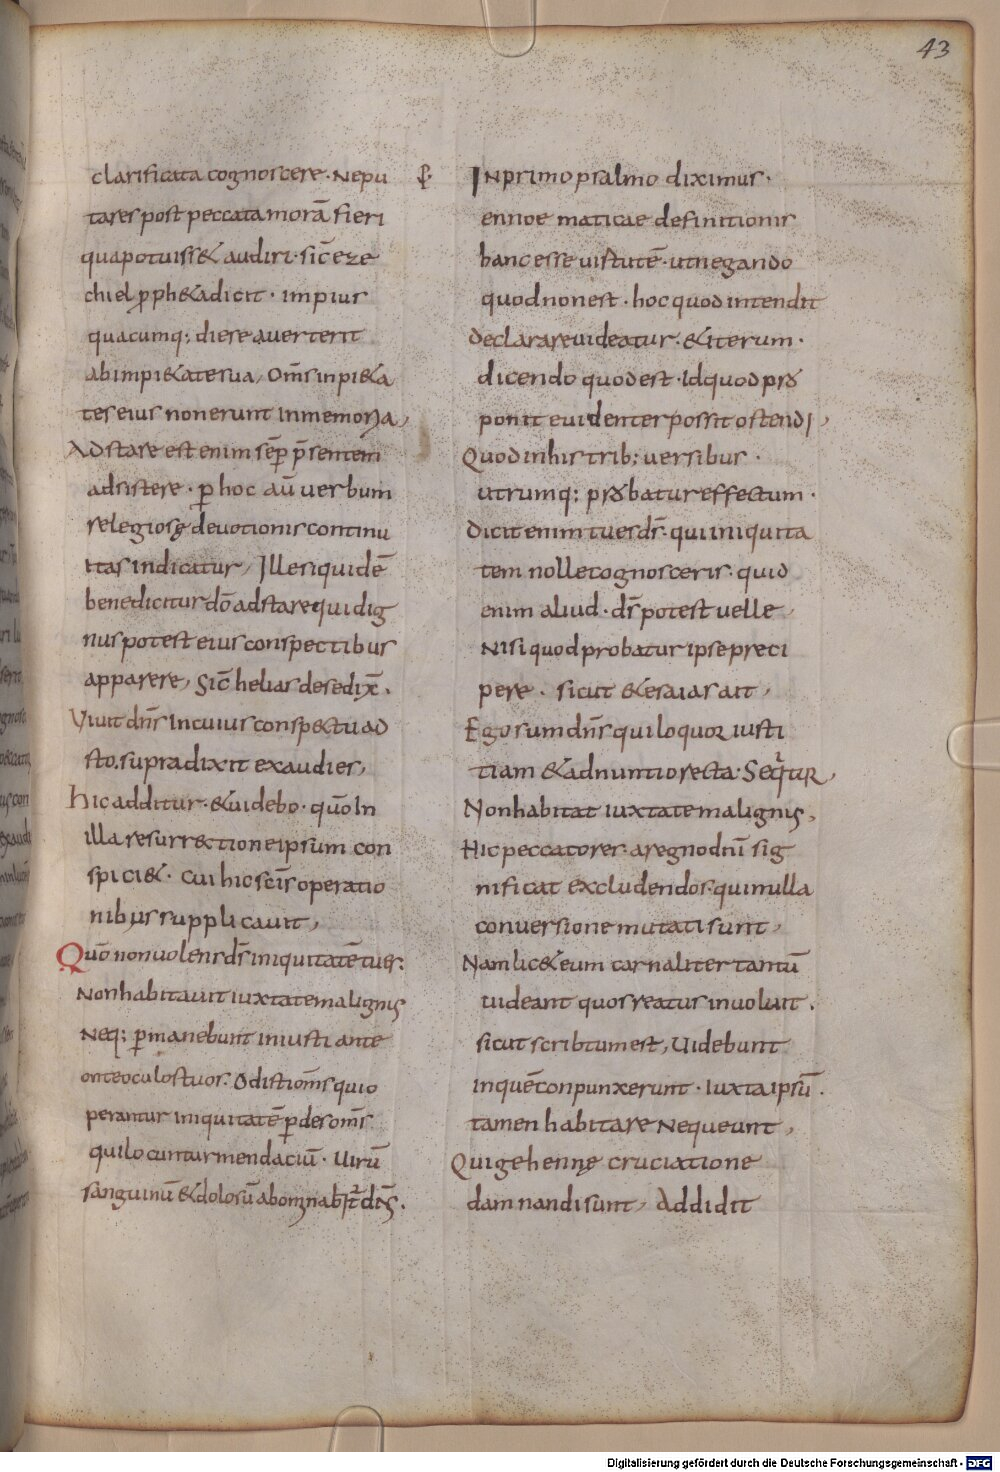 43
clarificata cognoscere. Nepu
tares post peccata morā fieri
qua potuiss& audiri. sic̄ eze
chiel ꝓph&a dicit. impius
quacumq; die se averterit
ab impi&ate sua, Om̄s inpi&a
tes eius non erunt in memoria,
Adstare est enim sēp p̄sentem
adsistere. ꝑ hoc aū verbum
relegiosę devotionis continu
itas indicatur, Ille siquidē
benedicitur dō adstare qui dig
nus potest eius conspectibus
apparere, Sic̄ helias de se dix̄.
Vivit dn̄s In cuius consp&tu ad
sto. supra dixit exaudies,
hic additur. & videbo. quō In
illa resurr&tione ipsum con
spici&. cui hic sc̄is operatio
nibus supplicavit,
Quō non volens ds̄ iniquitatē tu es:
Non habitavit iuxta te malignus
Neq; ꝑmanebunt iniusti ante
ante oculos tuos. Odisti om̄s qui o
perantur iniquitatē ꝑdes om̄s
qui locuntur mendaciū. Virū
sanguinū & dolosū abominabit̄ dn̄s.
In primo psalmo diximus.
ennoematicae definitionis
hanc esse virtutē. ut negando
quod non est. hoc quod intendit
declarare videatur. & iterum.
dicendo quod est. Id quod pro
ponit evidenter possit ostendi,
Quod in his trib; versibus.
utrumq; probatur effectum.
Dicit enim tu es ds̄. qui iniquita
tem nolle cognosceris. quid
enim aliud. ds̄ potest velle,
Nisi quod probatur ipse preci
pere. sicut & esaias ait,
Ego sum dn̄s qui loquor iusti
tiam & adnuntio recta. Sequit̄ur,
Non habitat iuxta te malignus,
Hic peccatores. a regno dn̄i sig
nificat excludendos. qui nulla
conversione mutati sunt,
Nam lic& eum carnaliter tantū
videant quos reatus involvit.
sicut scribtum est, Videbunt
in quē conpunxerunt. Iuxta ipsū.
tamen habitare Nequeunt,
Qui gehennę cruciatione
damnandi sunt, Addidit
Digitalisierung gefördert durch die Deutsche Forschungsgemeinschaft - DFG